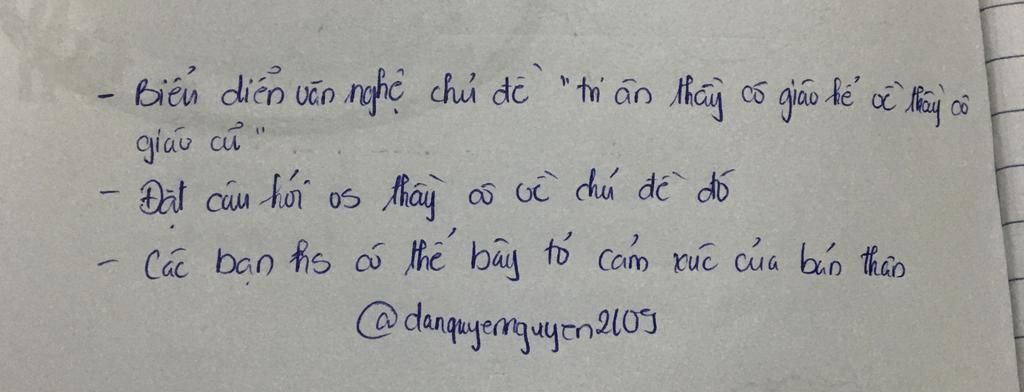 - Biểu diễn văn nghệ chủ đề "tri ân thầy cô giáo kể về thầy cô
giáo cũ"
- Đặt câu hỏi vs thầy cô về chủ đề đó
- Các bạn hs có thể bày tỏ cảm xúc của bản thân
@danquyennguyen2109